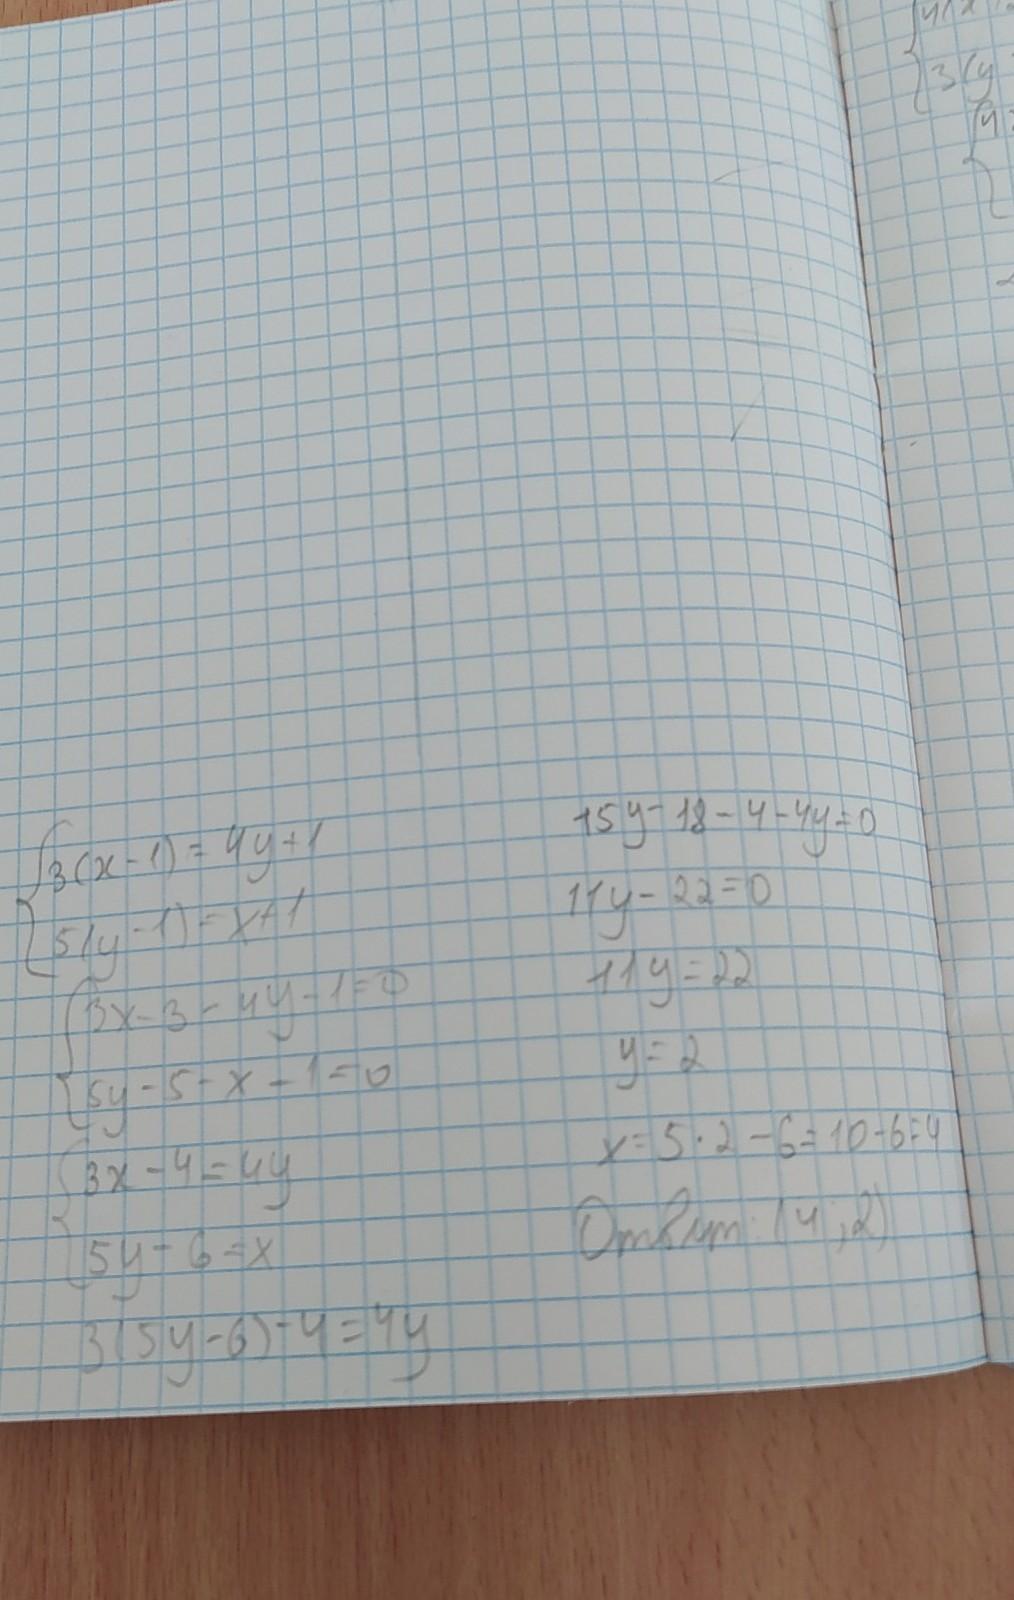 {3(x-1)=4y+1
{5(y-1)=x+1
{3x-3-4y-1=0
{5y-5-x-1=0
{3x-4=4y
{5y-6=x
3(5y-6)-4=4y
15y-18-4-4y=0
11y-22=0
11y=22
y=2
x=5·2-6=10-6=4
Ответ: (4;2)
{3(y